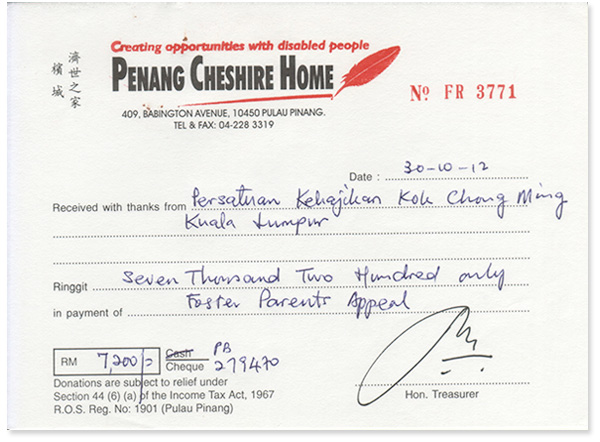 Creating opportunities with disabled people
濟世之家
檳城
PENANG CHESHIRE HOME
409, BABINGTON AVENUE, 10450 PULAU PINANG.
TEL & FAX: 04-228 3319
Nº FR 3771
Date : 30-10-12
Received with thanks from Persatuan Kebajikan Kok Chong Ming
Kuala Lumpur
Ringgit Seven Thousand Two Hundred only
in payment of Foster Parents Appeal
RM 7,200/= Cash PB
Cheque 279470
Donations are subject to relief under
Section 44 (6) (a) of the Income Tax Act, 1967
R.O.S. Reg. No: 1901 (Pulau Pinang)
Hon. Treasurer